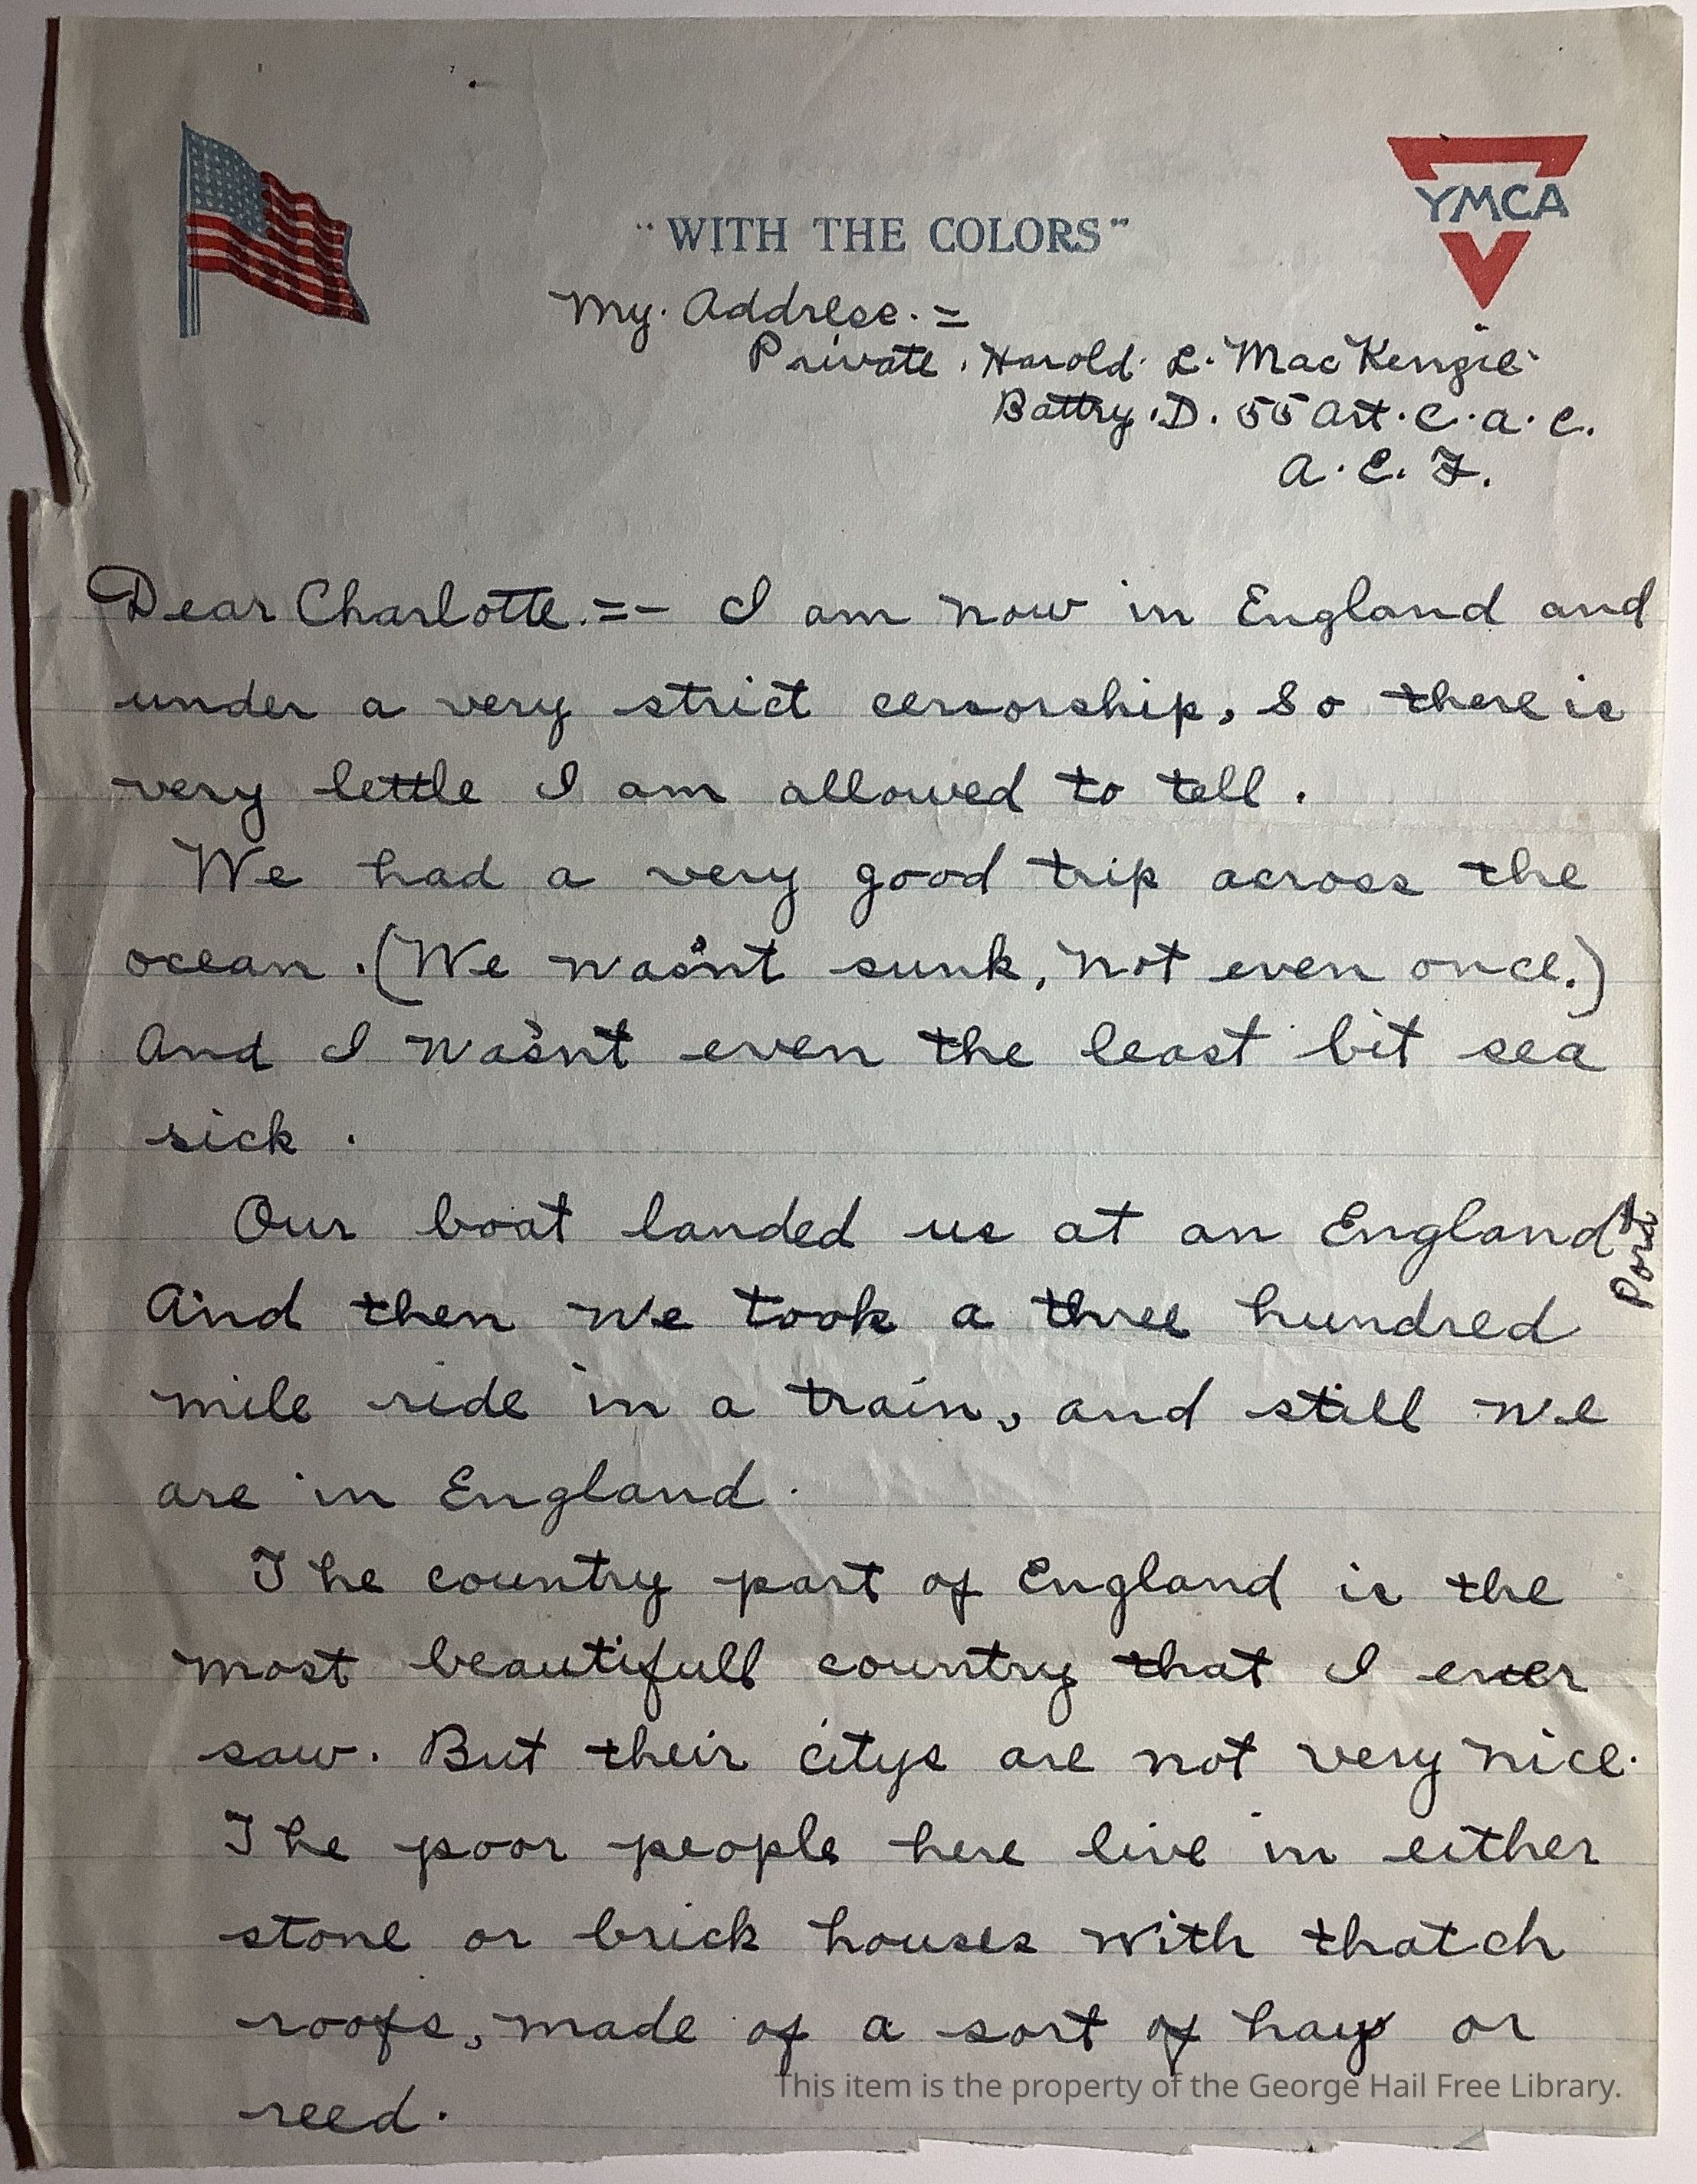 "WITH THE COLORS"
YMCA
My. Address. =
Private. Harold. L. MacKenzie.
Battry. D. 55 Art. C. a. C.
A. E. F.
Dear Charlotte. =- I am now in England and
under a very strict censorship, so there is
very lettle I am allowed to tell.
We had a very good trip across the
ocean. (We was'nt sunk, not even once.)
And I was'nt even the least bit sea
sick.
Our boat landed us at an England Port
And then we took a three hundred
mile ride in a train, and still we
are in England.
The country part of England is the
most beautifull country that I ever
saw. But their citys are not very nice.
The poor people here live in either
stone or brick houses with thatch
roofs, made of a sort of hay or
reed.
This item is the property of the George Hail Free Library.